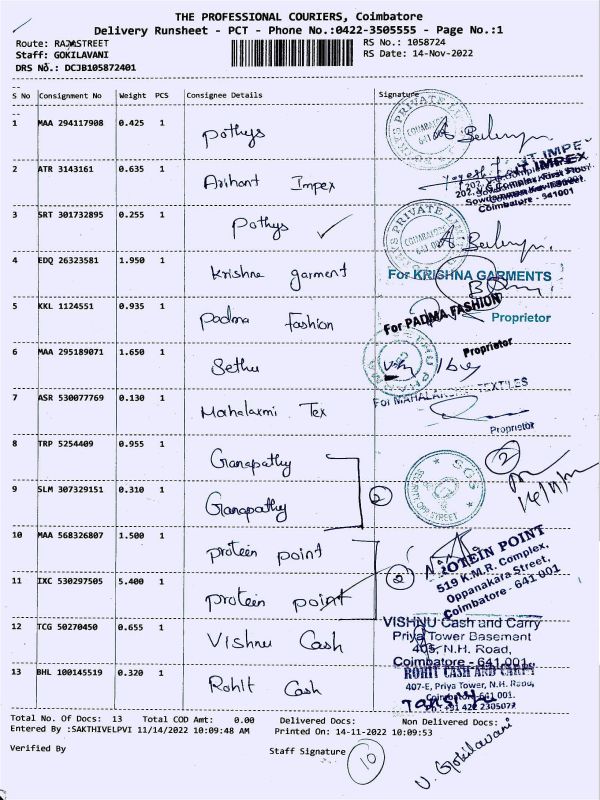 THE PROFESSIONAL COURIERS, Coimbatore
Delivery Runsheet - PCT - Phone No.:0422-3505555 - Page No.:1
Route: RAJASTREET RS No.: 1058724
Staff: GOKILAVANI RS Date: 14-Nov-2022
DRS No.: DCJB105872401
S No Consignment No Weight PCS Consignee Details Signature
1 MAA 294117908 0.425 1 Pothys
2 ATR 3143161 0.635 1 Arihant Impex
IMPEX
Coimbatore - 641001
3 SRT 301732895 0.255 1 Pothys ✓
4 EDQ 26323581 1.950 1 Krishna garment
For KRISHNA GARMENTS
Proprietor
5 KKL 1124551 0.935 1 Padma Fashion
For PADMA FASHION
Proprietor
6 MAA 295189071 1.650 1 Sethu
7 ASR 530077769 0.130 1 Mahalaxmi Tex
Proprietor
8 TRP 5254409 0.955 1 Ganapathy
2
9 SLM 307329151 0.310 1 Ganapathy
2
SGS
10 MAA 568326807 1.500 1 protein point
PROTEIN POINT
519 K.M.R. Complex,
Oppanakara Street,
Coimbatore - 641 001
2
11 IXC 530297505 5.400 1 protein point
12 TCG 50270450 0.655 1 Vishnu Cash
VISHNU Cash and Carry
Priya Tower Basement
405, N.H. Road,
Coimbatore - 641 001.
13 BHL 100145519 0.320 1 Rohit Cash
ROHIT CASH AND CARRY
407-E, Priya Tower, N.H. Road,
Coimbatore-641 001.
Ph: +91 422 2305072
Total No. Of Docs: 13 Total COD Amt: 0.00 Delivered Docs: Non Delivered Docs:
Entered By :SAKTHIVELPVI 11/14/2022 10:09:48 AM Printed On: 14-11-2022 10:09:53
Verified By Staff Signature
10
V. Gokilavani